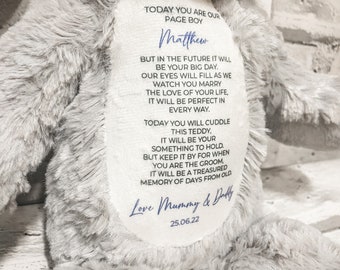 TODAY YOU ARE OUR
PAGE BOY
Matthew
BUT IN THE FUTURE IT WILL
BE YOUR BIG DAY.
OUR EYES WILL FILL AS WE
WATCH YOU MARRY
THE LOVE OF YOUR LIFE,
IT WILL BE PERFECT IN
EVERY WAY.
TODAY YOU WILL CUDDLE
THIS TEDDY,
IT WILL BE YOUR
SOMETHING TO HOLD.
BUT KEEP IT BY FOR WHEN
YOU ARE THE GROOM,
IT WILL BE A TREASURED
MEMORY OF DAYS FROM OLD.
Love Mummy & Daddy
25.06.22